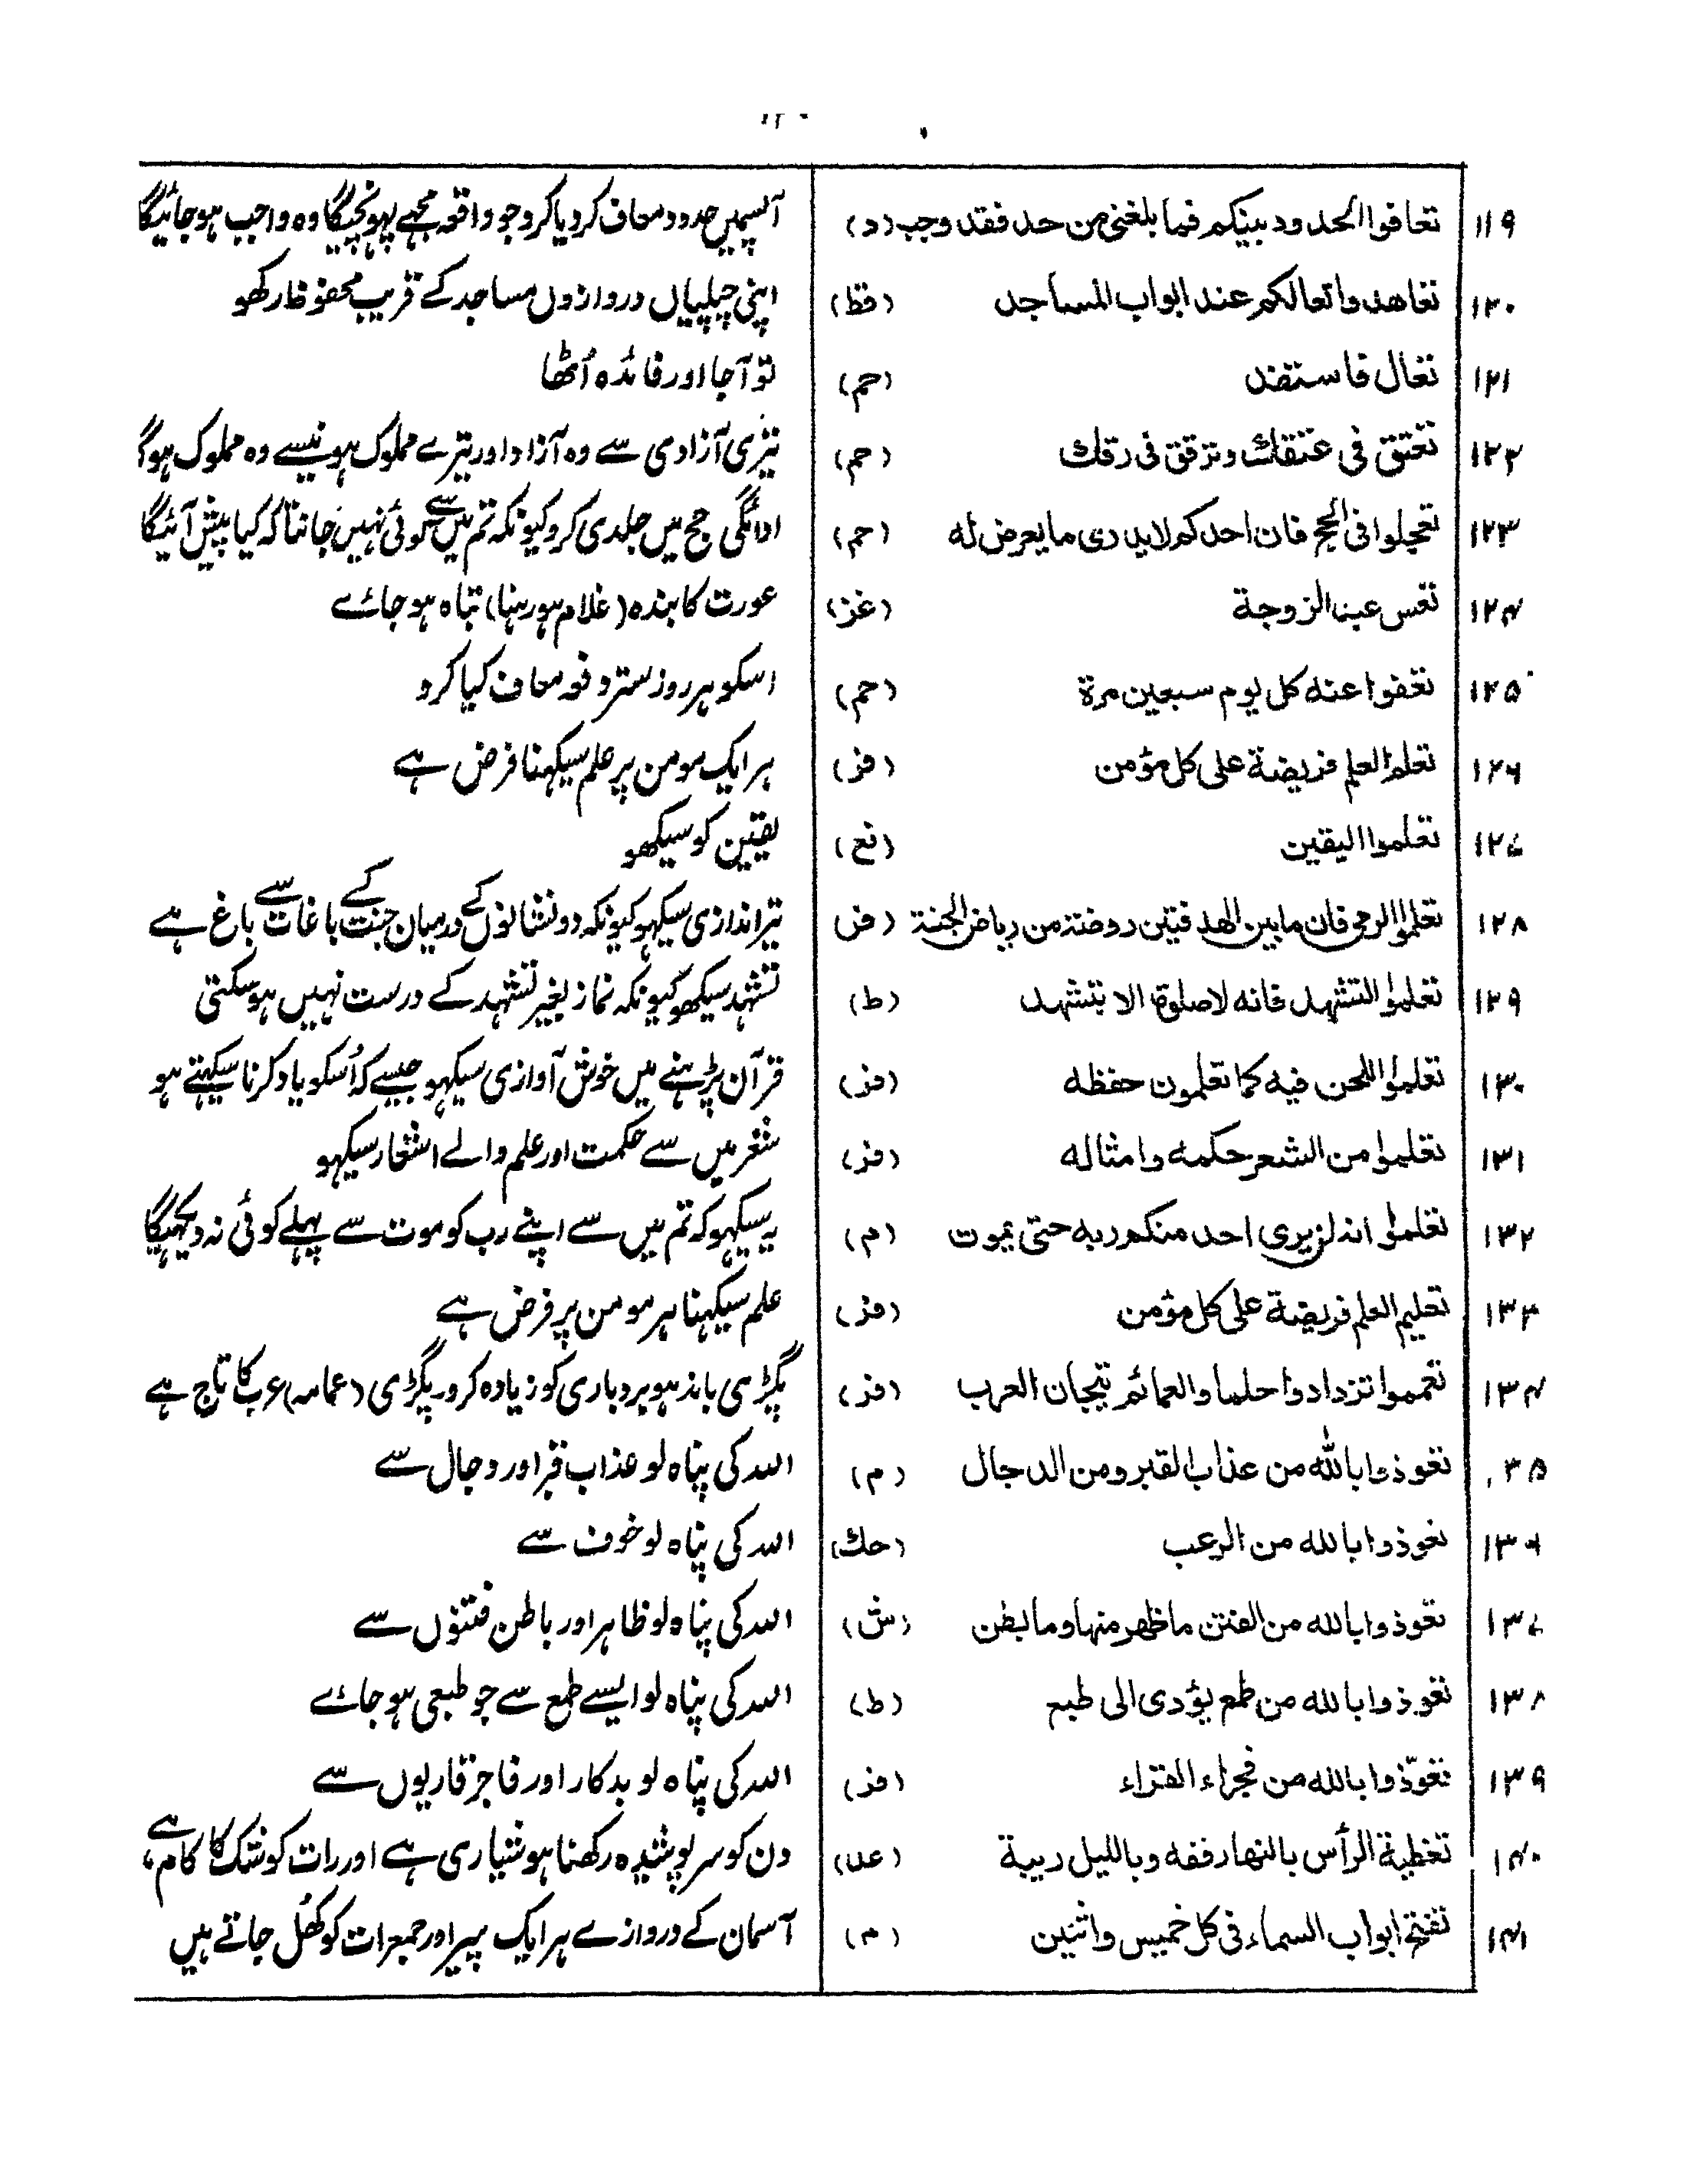 ١١٩ تعافوا الحدود بينكم فما بلغنى من حد فقد وجب (د) آپسمیں حدود معاف کردیا کرو جو واقعہ مجھے پہونچیگا وہ واجب ہوجائیگا
١٢٠ تعاهدوا نعالكم عند ابواب المساجد (قط) اپنی چپلیاں دروازوں مساجد کے قریب محفوظ رکھو
١٢١ تعال فاستقد (حم) تو آجا اور فائدہ اُٹھا
١٢٢ تعتق فى عتقك وترقق فى رقك (حم) تیری آزادی سے وہ آزاد اور تیرے مملوک ہونیسے وہ مملوک ہوگا
١٢٣ تعجلوا فى الحج فان احدكم لايدرى ما يعرض له (حم) ادائگی حج میں جلدی کرو کیونکہ تم میں سے کوئی نہیں جانتا کہ کیا پیش آئیگا
١٢٤ تعس عبد الزوجة (غز) عورت کا بندہ (غلام ہو رہنا) تباہ ہوجائے
١٢٥ تعفوا عنه كل يوم سبعين مرة (حم) اسکو ہر روز ستر دفعہ معاف کیا کرو
١٢٦ تعلم العلم فريضة على كل مؤمن (فز) ہر ایک مومن پر علم سیکھنا فرض ہے
١٢٧ تعلموا اليقين (نع) یقین کو سیکھو
١٢٨ تعلموا الرمى فان ما بين الهدفين روضة من رياض الجنة (فز) تیر اندازی سیکھو کیونکہ دو نشانوں کے درمیان جنت کے باغات سے باغ ہے
١٢٩ تعلموا التشهد فانه لاصلوة الا بتشهد (ط) تشہد سیکھو کیونکہ نماز بغیر تشہد کے درست نہیں ہوسکتی
١٣٠ تعلموا اللحن فيه كما تعلمون حفظه (فز) قرآن پڑہنے میں خوش آوازی سیکہو جیسے کہ اُسکو یاد کرنا سیکہتے ہو
١٣١ تعلموا من الشعر حكمه وامثاله (فز) شعر میں سے حکمت اور علم والے اشعار سیکہو
١٣٢ تعلموا انه لن يرى احد منكم ربه حتى يموت (م) یہ سیکہو کہ تم میں سے اپنے رب کو موت سے پہلے کوئی نہ دیکہیگا
١٣٣ تعليم العلم فريضة على كل مؤمن (فز) علم سیکہنا ہر مومن پر فرض ہے
١٣٤ تعمموا تزدادوا حلما والعمائم تيجان العرب (فز) پگڑی باندہو بردباری کو زیادہ کرو پگڑی (عمامہ) عرب کا تاج ہے
١٣٥ تعوذوا بالله من عذاب القبر ومن الدجال (م) اللہ کی پناہ لو عذاب قبر اور دجال سے
١٣٦ تعوذوا بالله من الرعب (حك) اللہ کی پناہ لو خوف سے
١٣٧ تعوذوا بالله من الفتن ما ظهر منها وما بطن (ش) اللہ کی پناہ لو ظاہر اور باطن فتنوں سے
١٣٨ تعوذوا بالله من طمع يؤدى الى طبع (ط) اللہ کی پناہ لو ایسے طمع سے جو طبعی ہوجائے
١٣٩ تعوّذوا بالله من فجراء القراء (فز) اللہ کی پناہ لو بدکار اور فاجر قاریوں سے
١٤٠ تغطية الرأس بالنهار فقه وبالليل ريبة (عد) دن کو سر پوشیدہ رکھنا ہوشیاری ہے اور رات کو شک کا کام ہے
١٤١ تفتح ابواب السماء فى كل خميس واثنين (م) آسمان کے دروازے ہر ایک پیر اور جمعرات کو کھُل جاتے ہیں